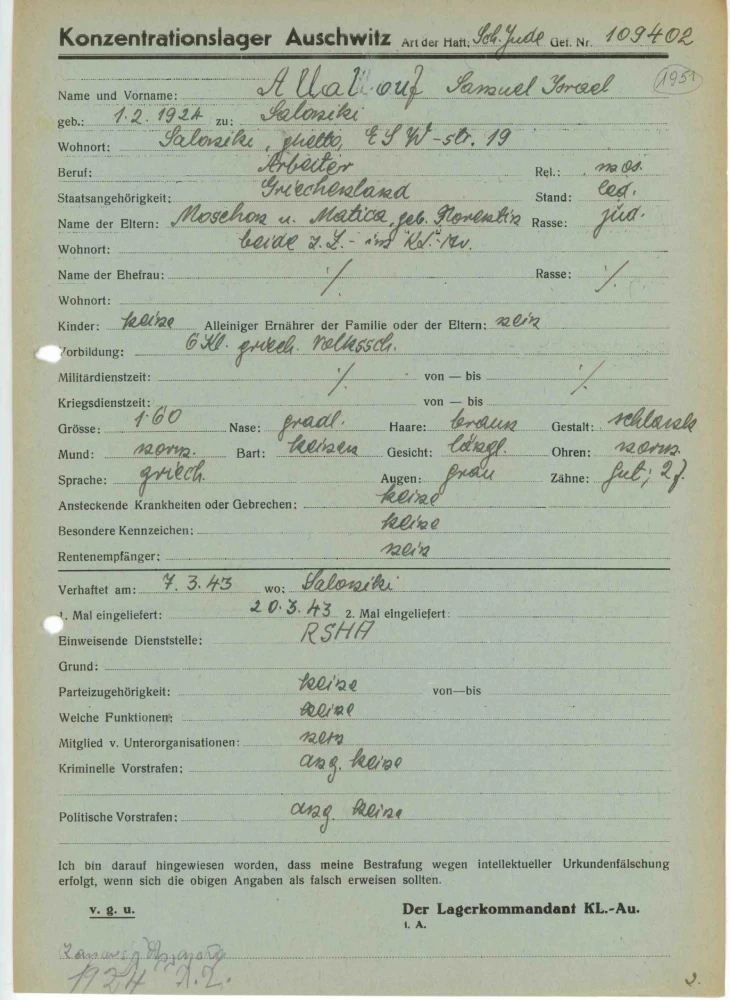 Konzentrationslager Auschwitz Art der Haft: Sch. Jude Gef. Nr. 109402
1951
Name und Vorname: Allalouf Samuel Israel
geb.: 1.2.1924 zu: Saloniki
Wohnort: Saloniki, ghetto, -str. 19
Beruf: Arbeiter Rel.: mos.
Staatsangehörigkeit: Griechenland Stand: led.
Name der Eltern: Moschon u. Matica, geb. Florentin Rasse: jüd.
Wohnort: beide z.Z.- im Kl.-Au.
Name der Ehefrau: ./. Rasse: ./.
Wohnort:
Kinder: keine Alleiniger Ernährer der Familie oder der Eltern: nein
Vorbildung: 6 Kl. griech. Volkssch.
Militärdienstzeit: ./. von — bis ./.
Kriegsdienstzeit: von — bis
Grösse: 1.60 Nase: gradl. Haare: braun Gestalt: schlank
Mund: norm. Bart: keinen Gesicht: längl. Ohren: norm.
Sprache: griech. Augen: grau Zähne: gut; 2 f.
Ansteckende Krankheiten oder Gebrechen: keine
Besondere Kennzeichen: keine
Rentenempfänger: nein
Verhaftet am: 7.3.43 wo: Saloniki
1. Mal eingeliefert: 20.3.43 2. Mal eingeliefert:
Einweisende Dienststelle: RSHA
Grund:
Parteizugehörigkeit: keine von—bis
Welche Funktionen: keine
Mitglied v. Unterorganisationen: nein
Kriminelle Vorstrafen: ang. keine
Politische Vorstrafen: ang. keine
Ich bin darauf hingewiesen worden, dass meine Bestrafung wegen intellektueller Urkundenfälschung
erfolgt, wenn sich die obigen Angaben als falsch erweisen sollten.
v. g. u. Der Lagerkommandant KL.-Au.
i. A.
1924
2.